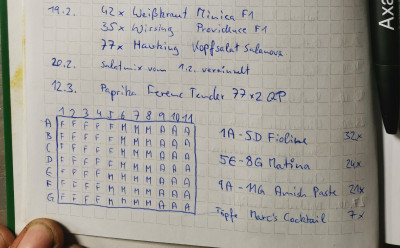 19.2. 42x Weißkraut Minica F1
35x Wirsing Providence F1
77x Hawking Kopfsalat Salanova
20.2. Salatmix vom 1.2. vereinzelt
12.3. Paprika Ferenc Tender 77x2 QP
1 2 3 4 5 6 7 8 9 10 11
A F F F F F M M M A A A
B F F F F F M M M A A A
C F F F F F M M M A A A
D F F F F F M M M A A A
E F F F F M M M M A A A
F F F F F M M M M A A A
G F F F F M M M M A A A
1A - 5D Fioline 32x
5E - 8G Matina 24x
9A - 11G Amish Paste 21x
Töpfe Marc's Cocktail 7x
Axa